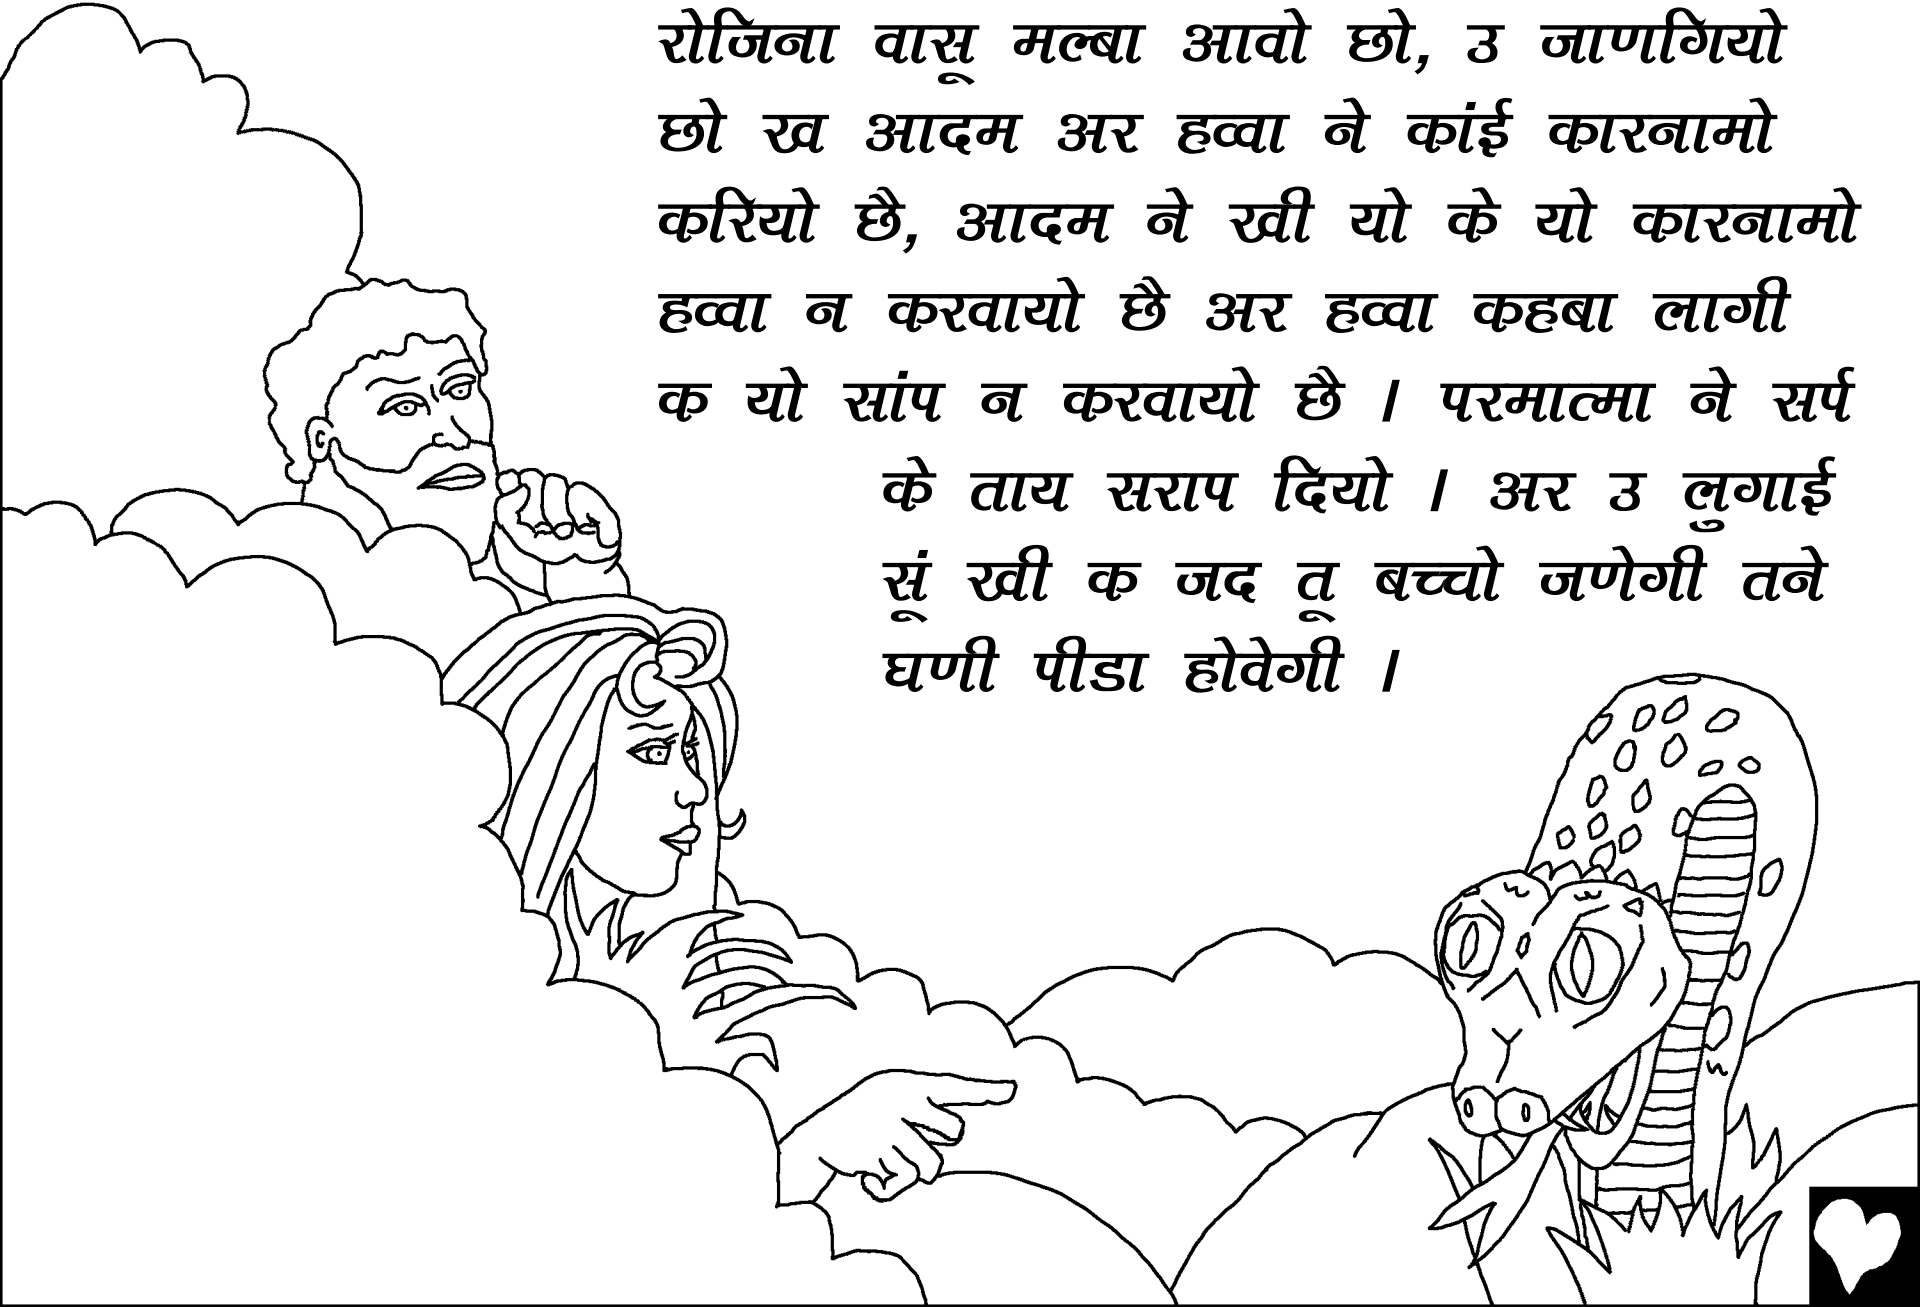 रोजिना वासू मल्बा आवो छो, उ जाणगियो
छो ख आदम अर हव्वा ने कांई कारनामो
करियो छै, आदम ने खी यो के यो कारनामो
हव्वा न करवायो छै अर हव्वा कहबा लागी
क यो सांप न करवायो छै । परमात्मा ने सर्प
के ताय सराप दियो । अर उ लुगाई
सूं खी क जद तू बच्चो जणेगी तने
घणी पीडा होवेगी ।